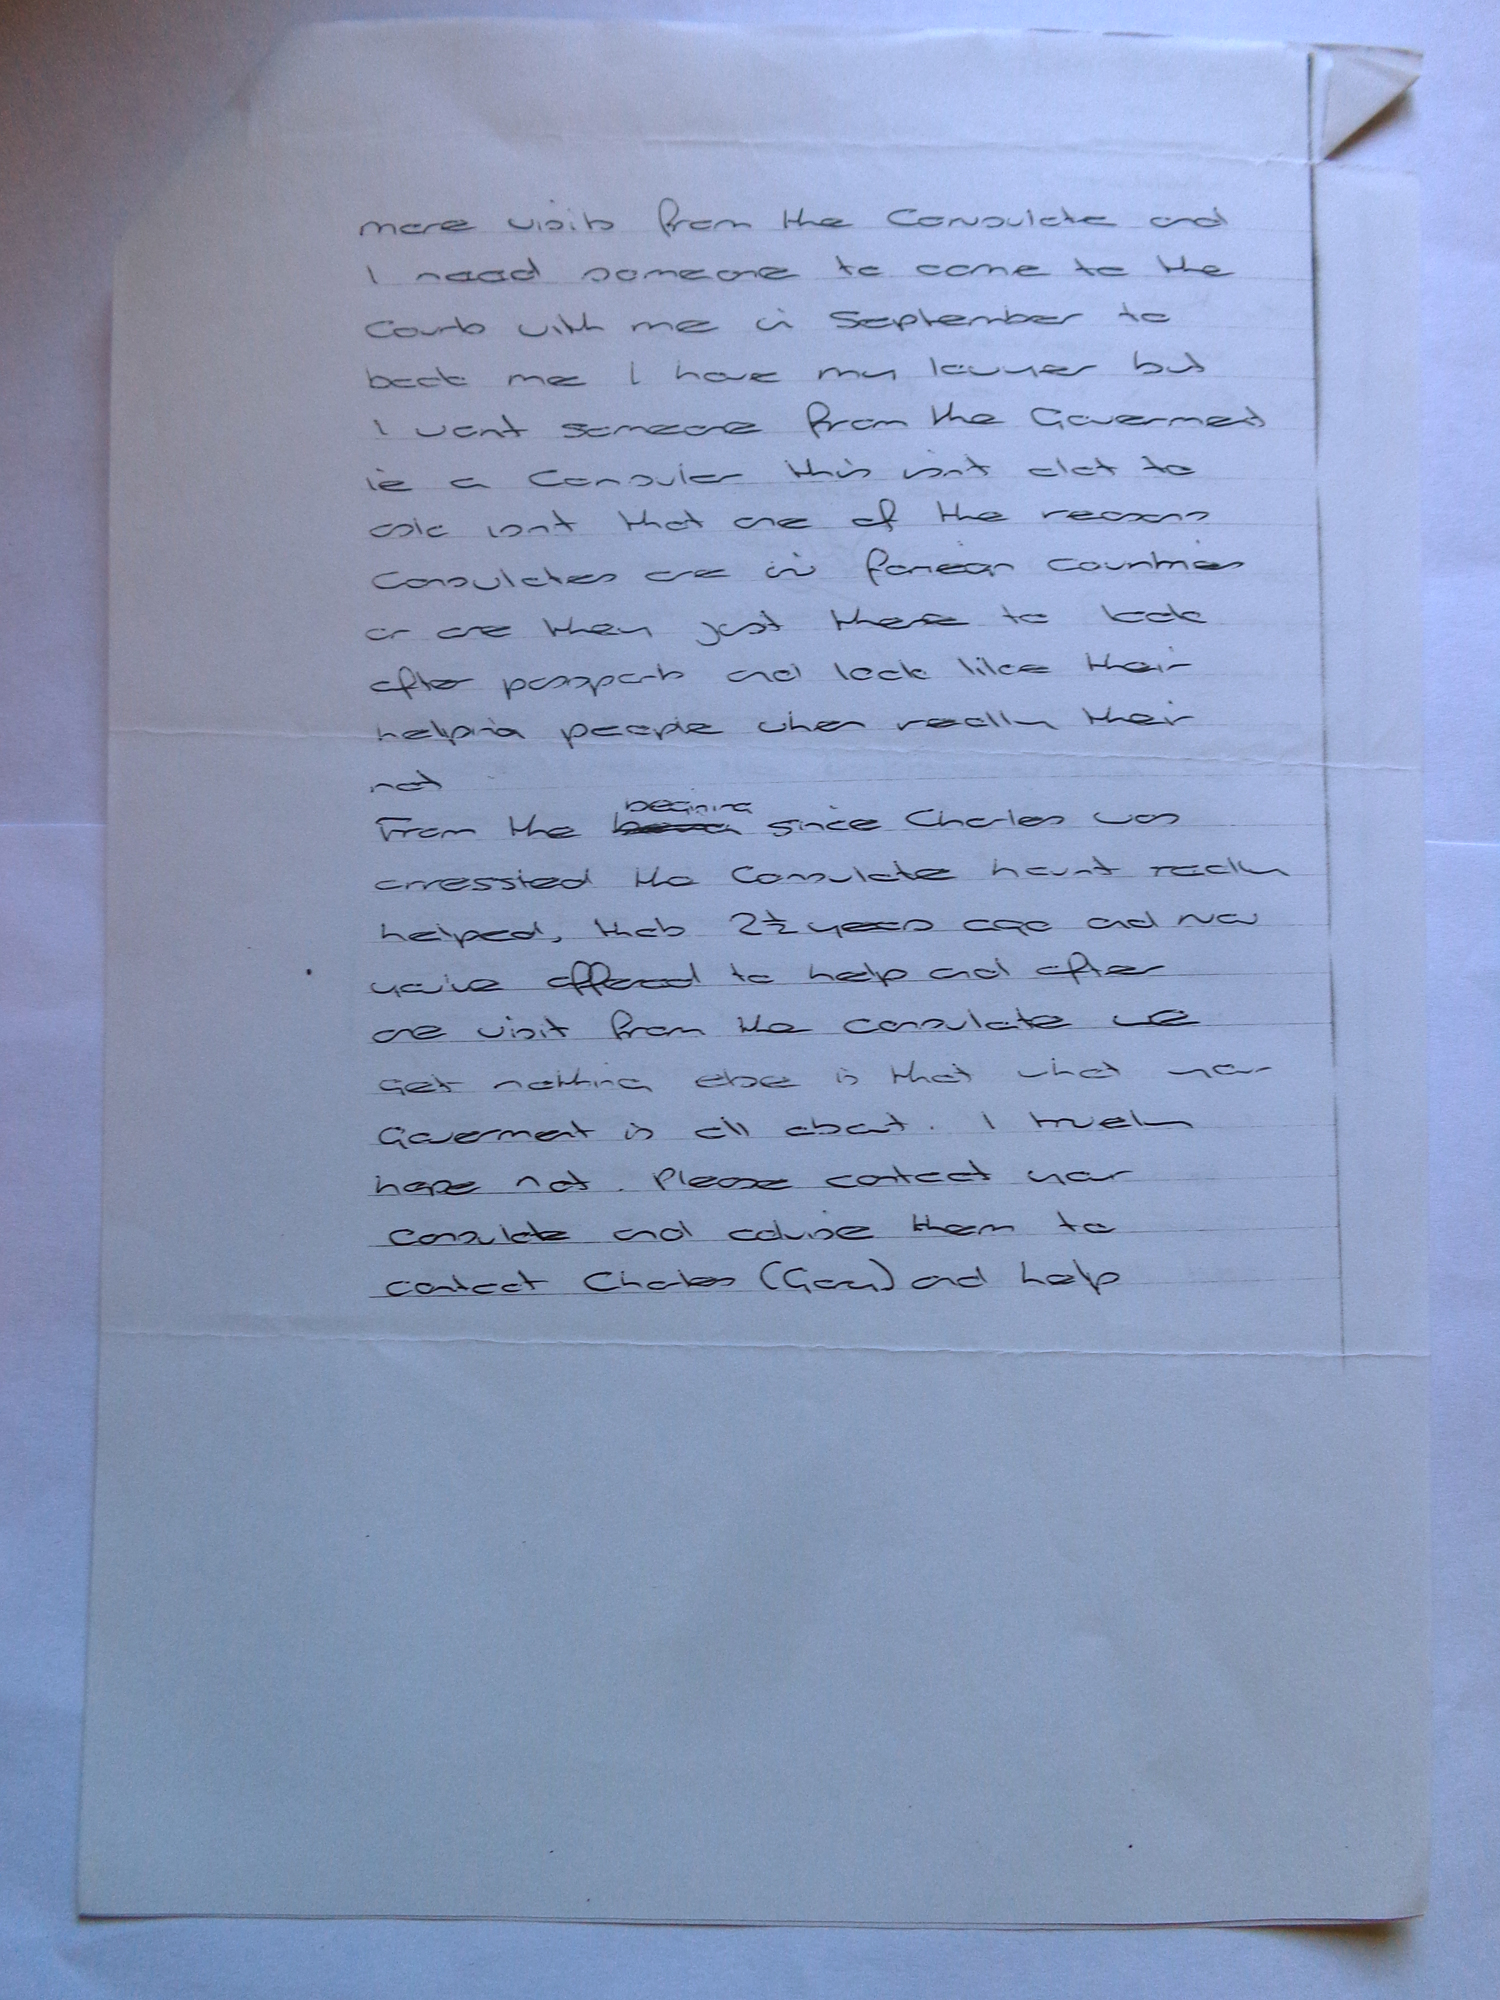 more visits from the Consulate and
I need someone to come to the
Courts with me in September to
back me I have my lawyer but
I want someone from the Goverment
ie a Consuler this isnt alot to
ask isnt that one of the reasons
Consulates are in foriegn countries
or are they just there to look
after passports and look like their
helping people when really their
not
From the begining since Charles was
arressted the Consulate havnt really
helped, thats 2½ years ago and now
you've offered to help and after
one visit from the consulate we
get nothing else is that what your
Goverment is all about. I truely
hope not. Please contact your
Consulate and advise them to
contact Charles (Gary) and help